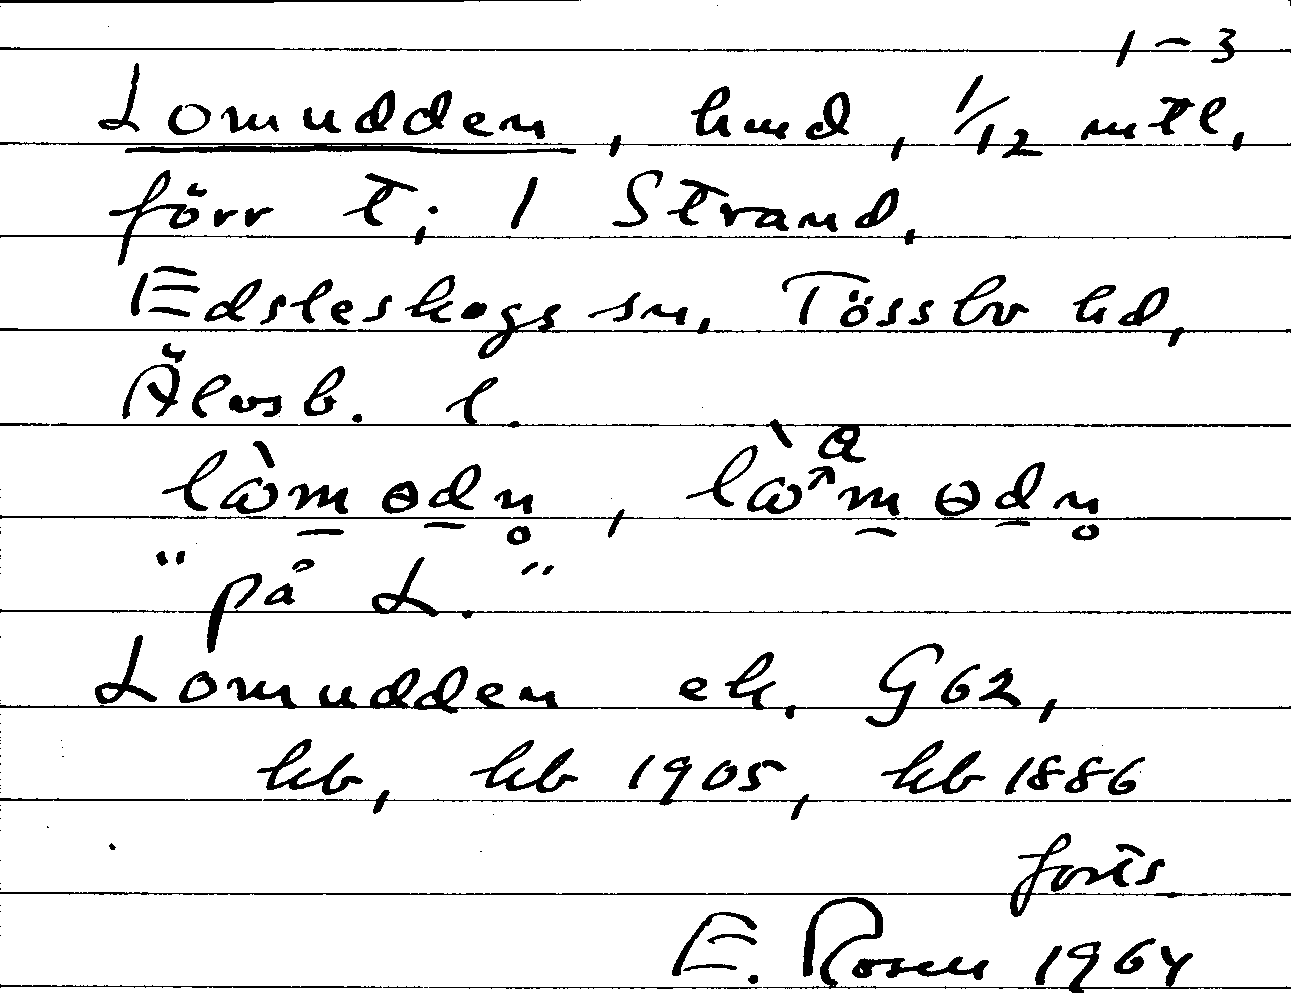 1–3
Lomudden, hmd, 1/12 mtl,
förr t; 1 Strand,
Edsleskogs sn, Tössbo hd,
Älvsb. l.
lὼmɵdn̥, lὼᵃmɵdn̥
"på L."
Lomudden ek. G62,
kb, kb 1905, kb 1886
forts
E. Rosen 1964